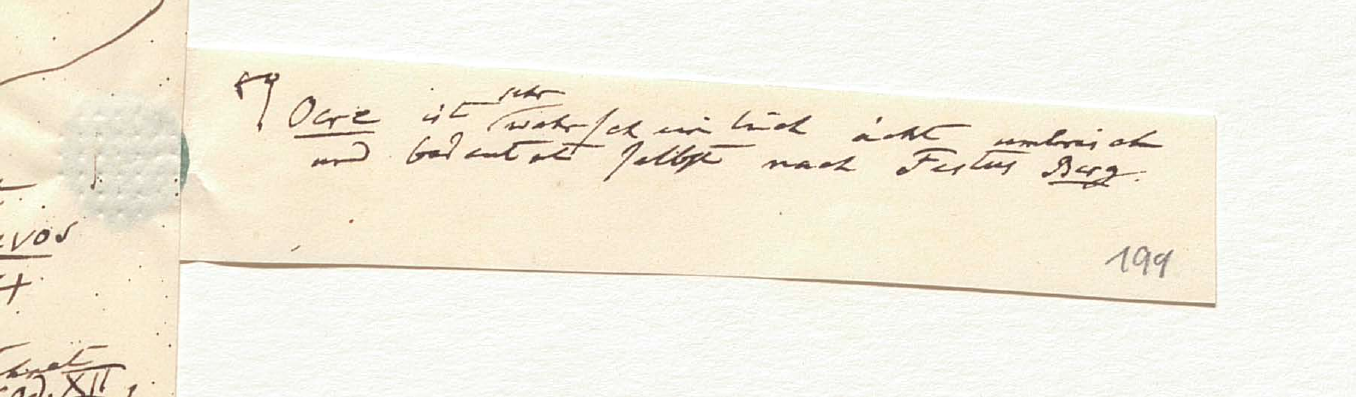 Ocre ist sehr wahrscheinlich ächt umbrisch
und bedeutet selbst nach Festus Berg.
199
XII,